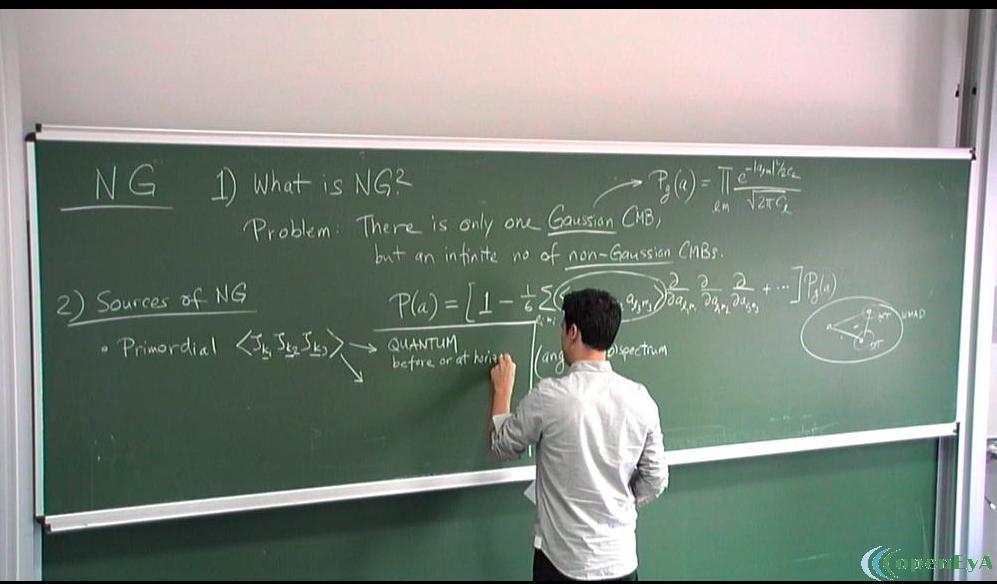 NG 1) What is NG?
P_g(a) = ∏_{lm} e^{-|a_{lm}|²/2C_l} / √(2πC_l)
Problem: There is only one Gaussian CMB,
but an infinite no of non-Gaussian CMBs.
2) Sources of NG
P(a) = [1 - 1/6 Σ ∂/∂a ∂/∂a ∂/∂a + ...] P_g(a)
WMAP
ΔT
ΔT
• Primordial <ζ_{k1} ζ_{k2} ζ_{k3}> → QUANTUM
before or at horiz
(ang spectrum
openEyA